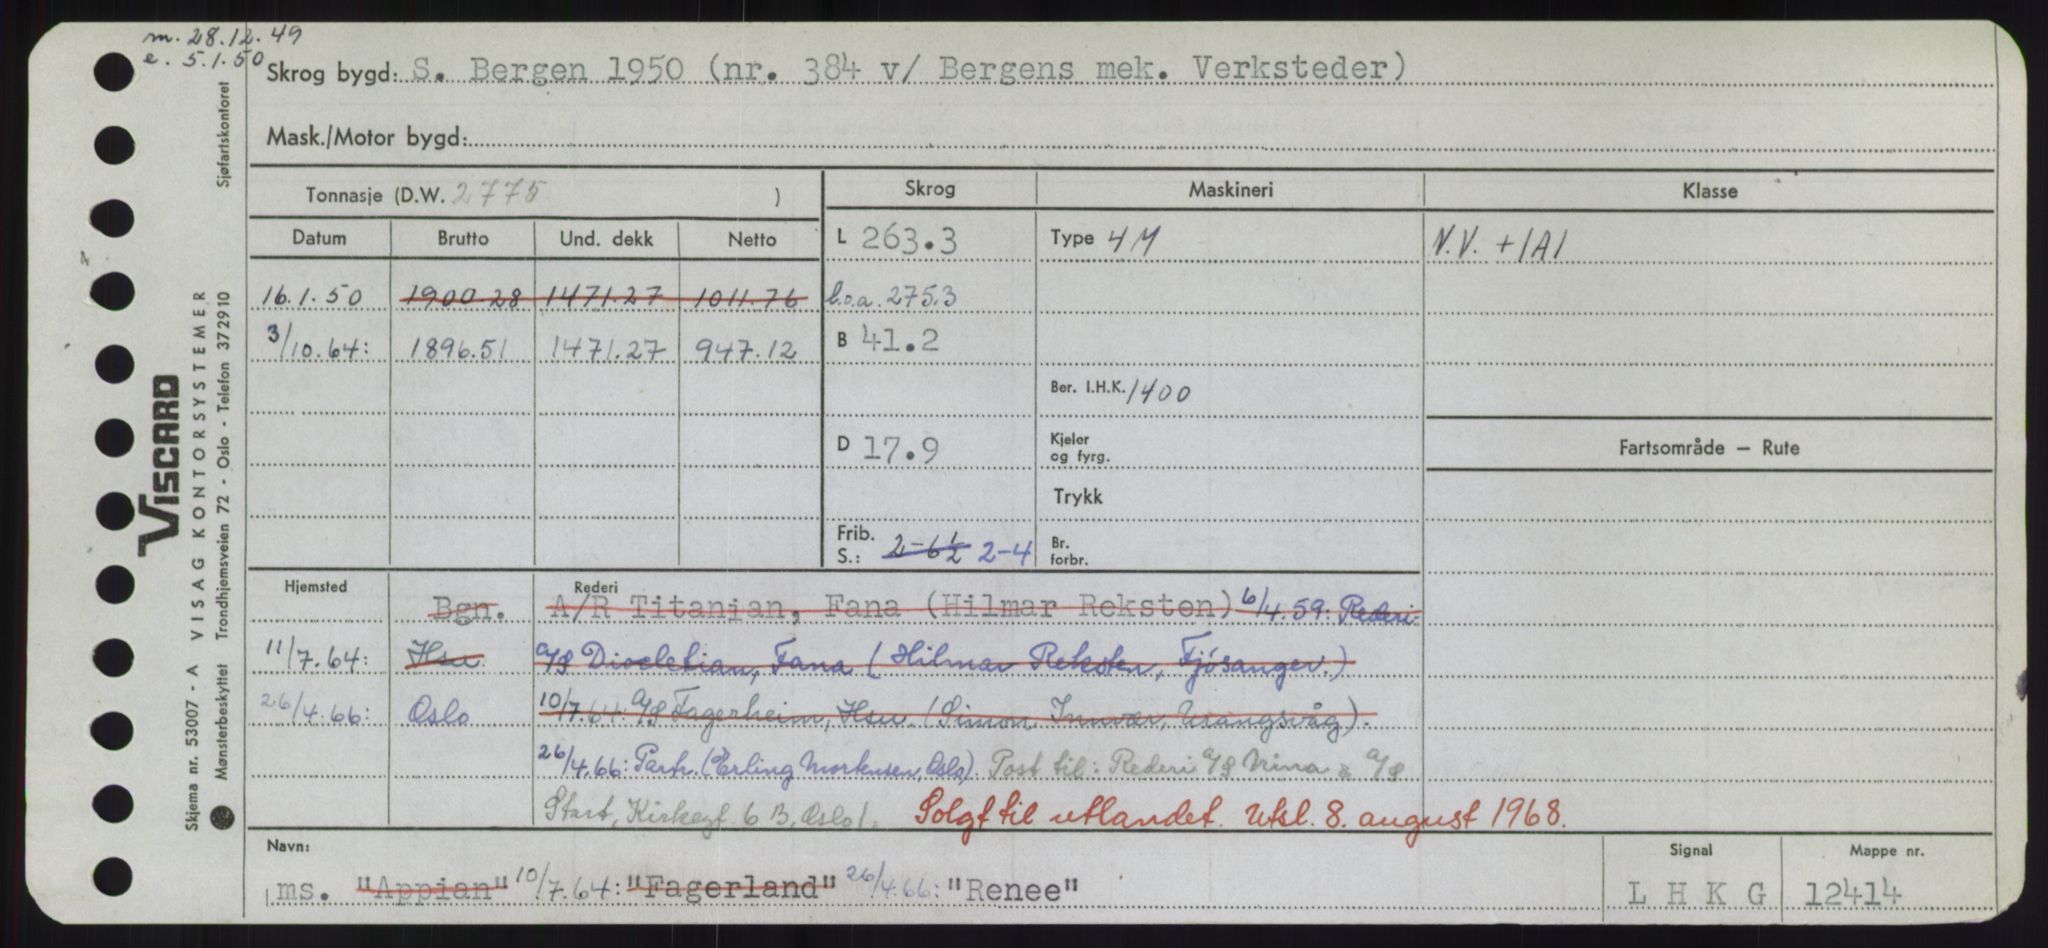 m. 28.12.49
e. 5.1.50
Skrog bygd: S. Bergen 1950 (nr. 384 v/ Bergens mek. Verksteder)
Mask./Motor bygd:
Tonnasje (D.W. 2775 )
Skrog Maskineri Klasse
Datum Brutto Und. dekk Netto
L 263.3 Type 4M N.V. +1A1
16.1.50 1900.28 1471.27 1011.76 l.o.a. 275.3
3/10.64: 1896.51 1471.27 947.12 B 41.2
Ber. I.H.K. 1400
D 17.9 Kjeler og fyrg. Fartsområde — Rute
Trykk
Frib. S.: 2-6½ 2-4 Br. forbr.
Hjemsted Rederi
Bgn. A/R Titanian, Fana (Hilmar Reksten) 6/4.59: Rederi-
11/7.64: Hsu A/S Diocletian, Fana (Hilmar Reksten, Fjøsanger.)
26/4.66: Oslo 10/7.64: A/S Fagerheim, Hsu. (Simon Innvær, Urangsvåg).
26/4.66: Partr. (Erling Mortensen, Oslo). Post til: Rederi A/S Nina & A/S
Start, Kirkegt. 6 B, Oslo 1. Solgt til utlandet. Utsl. 8. august 1968.
Navn: Signal Mappe nr.
ms. "Appian" 10/7.64: "Fagerland" 26/4.66: "Renee" L H K G 12414
Skjema nr. 53007 - A VISAG KONTORSYSTEMER
VISCARD
Mønsterbeskyttet Trondhjemsveien 72 - Oslo - Telefon 372910 Sjøfartskontoret